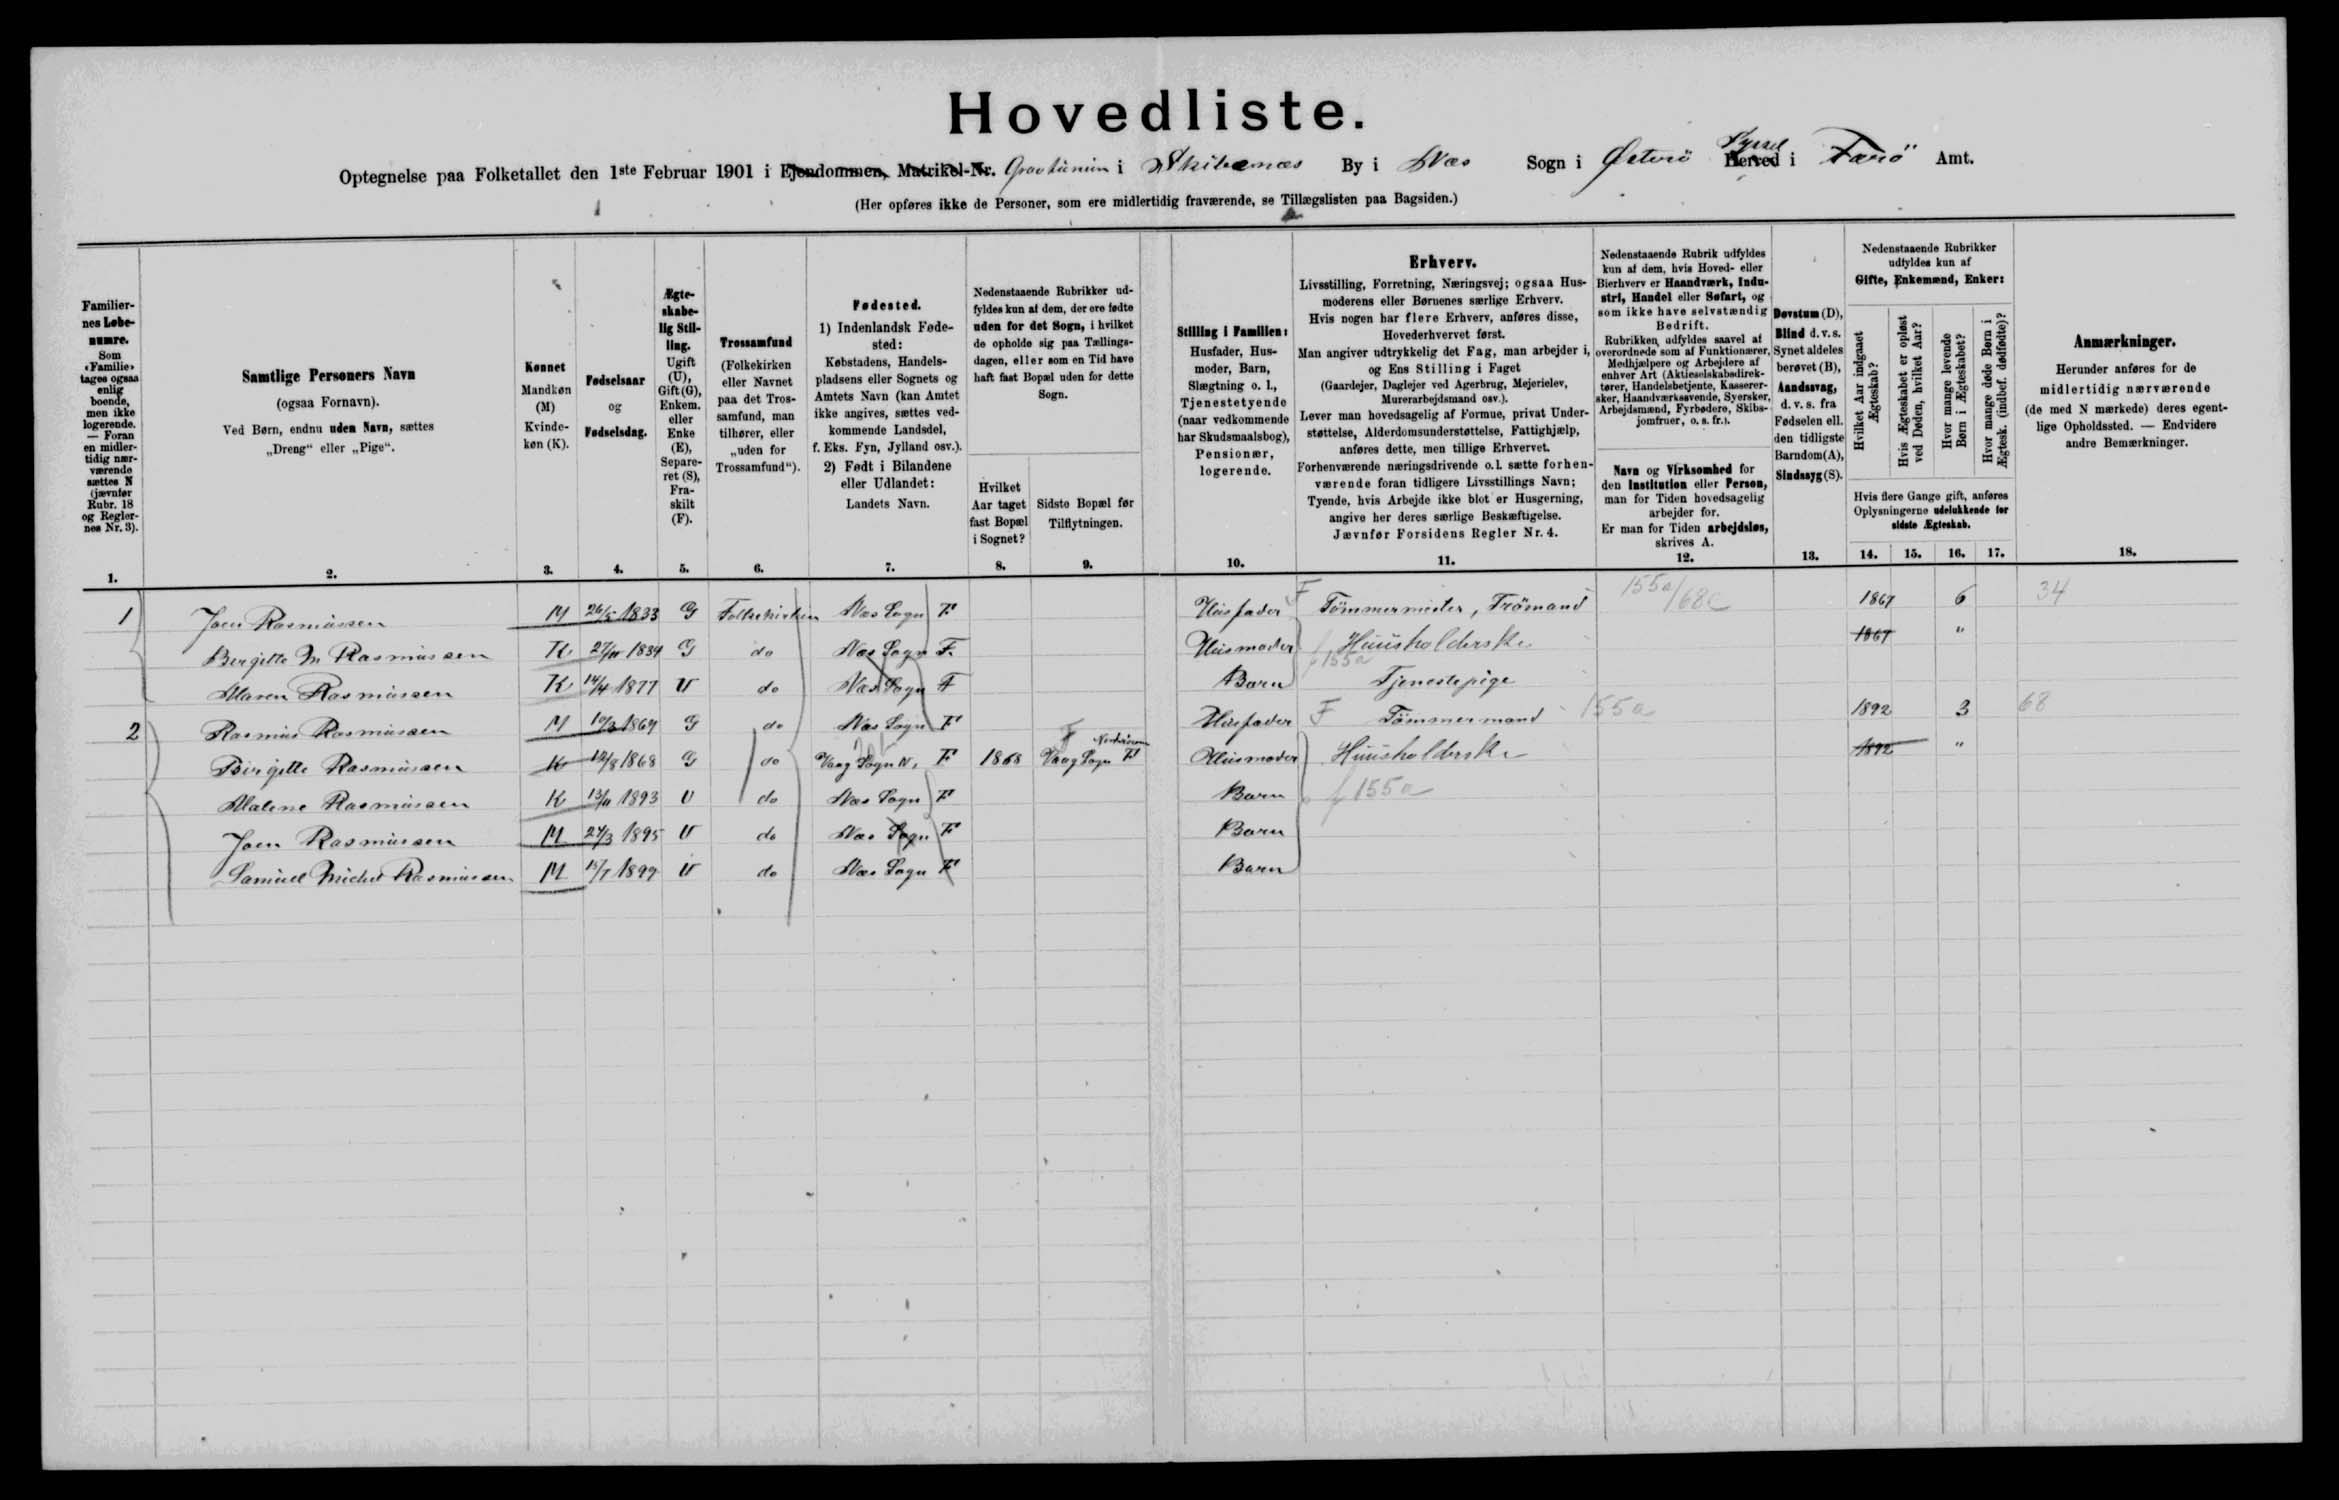 Hovedliste.
Optegnelse paa Folketallet den 1ste Februar 1901 i Ejendommen, Matrikel-Nr. i By i Næs Sogn i Østerö Syssel Herred i Færö Amt.
(Her opføres ikke de Personer, som ere midlertidig fraværende, se Tillægslisten paa Bagsiden.)
Familiernes Løbenumre.
Som «Familie» tages ogsaa enlig boende, men ikke logerende. — Foran en midlertidig nærværende sættes N (jævnfør Rubr. 18 og Reglernes Nr. 3).
1.
Samtlige Personers Navn
(ogsaa Fornavn).
Ved Børn, endnu uden Navn, sættes
„Dreng“ eller „Pige“.
2.
Kønnet
Mandkøn (M)
Kvindekøn (K).
3.
Fødselsaar
og
Fødselsdag.
4.
Ægteskabelig Stilling.
Ugift (U), Gift (G), Enkem. eller Enke (E), Separeret (S), Fraskilt (F).
5.
Trossamfund
(Folkekirken eller Navnet paa det Trossamfund, man tilhører, eller „uden for Trossamfund“).
6.
Fødested.
1) Indenlandsk Fødested:
Købstadens, Handelspladsens eller Sognets og Amtets Navn (kan Amtet ikke angives, sættes vedkommende Landsdel, f. Eks. Fyn, Jylland osv.).
2) Født i Bilandene eller Udlandet:
Landets Navn.
7.
Nedenstaaende Rubrikker udfyldes kun af dem, der ere fødte uden for det Sogn, i hvilket de opholde sig paa Tællingsdagen, eller som en Tid have haft fast Bopæl uden for dette Sogn.
Hvilket Aar taget fast Bopæl i Sognet?
8.
Sidste Bopæl før Tilflytningen.
9.
Stilling i Familien:
Husfader, Husmoder, Barn, Slægtning o. l., Tjenestetyende (naar vedkommende har Skudsmaalsbog), Pensionær, logerende.
10.
Erhverv.
Livsstilling, Forretning, Næringsvej; ogsaa Husmoderens eller Børnenes særlige Erhverv.
Hvis nogen har flere Erhverv, anføres disse, Hovederhvervet først.
Man angiver udtrykkelig det Fag, man arbejder i, og Ens Stilling i Faget
(Gaardejer, Daglejer ved Agerbrug, Mejerielev, Murerarbejdsmand osv.).
Lever man hovedsagelig af Formue, privat Understøttelse, Alderdomsunderstøttelse, Fattighjælp, anføres dette, men tillige Erhvervet.
Forhenværende næringsdrivende o. l. sætte forhenværende foran tidligere Livsstillings Navn;
Tyende, hvis Arbejde ikke blot er Husgerning, angive her deres særlige Beskæftigelse.
Jævnfør Forsidens Regler Nr. 4.
11.
Nedenstaaende Rubrik udfyldes kun af dem, hvis Hoved- eller Bierhverv er Haandværk, Industri, Handel eller Søfart, og som ikke have selvstændig Bedrift.
Rubrikken udfyldes saavel af overordnede som af Funktionærer, Medhjælpere og Arbejdere af enhver Art (Aktieselskabsdirektører, Handelsbetjente, Kasserersker, Haandværkssvende, Syersker, Arbejdsmænd, Fyrbødere, Skibsjomfruer, o. s. fr.).
Navn og Virksomhed for den Institution eller Person, man for Tiden hovedsagelig arbejder for.
Er man for Tiden arbejdsløs, skrives A.
12.
Døvstum (D), Blind d. v. s. Synet aldeles berøvet (B), Aandssvag, d. v. s. fra Fødselen ell. den tidligste Barndom (A), Sindssyg (S).
13.
Nedenstaaende Rubrikker udfyldes kun af
Gifte, Enkemænd, Enker:
Hvilket Aar indgaaet Ægteskab?
Hvis Ægteskabet er opløst ved Døden, hvilket Aar?
Hvor mange levende Børn i Ægteskabet?
Hvor mange døde Børn i Ægtesk. (indbef. dødfødte)?
Hvis flere Gange gift, anføres Oplysningerne udelukkende for sidste Ægteskab.
14. 15. 16. 17.
Anmærkninger.
Herunder anføres for de midlertidig nærværende (de med N mærkede) deres egentlige Opholdssted. — Endvidere andre Bemærkninger.
18.
1 Joen Rasmussen M 26/5 1833 G Folkekirken Næs Sogn F Husfader F Tömmermester, 155a/68c 1867 6 34
Bergitte M Rasmussen K 1834 G do Næs Sogn F Husmoder Huusholderske 1867 "
155a
Maren Rasmussen K 14/4 1877 U do Næs Sogn F Barn Tjenestepige
2 Rasmus Rasmussen M 10/3 1869 G do Næs Sogn F Husfader F Tömmermand 155a 1892 3 68
Birgitte Rasmussen K 12/8 1868 G do Vaag Sogn N. F 1868 Vaag Sogn F Husmoder Huusholderske 1892 "
Malene Rasmussen K 13/11 1893 U do Næs Sogn F Barn f 155a
Joen Rasmussen M 27/3 1895 U do Næs Sogn F Barn
Samuel Michel Rasmussen M 15/7 1899 U do Næs Sogn F Barn